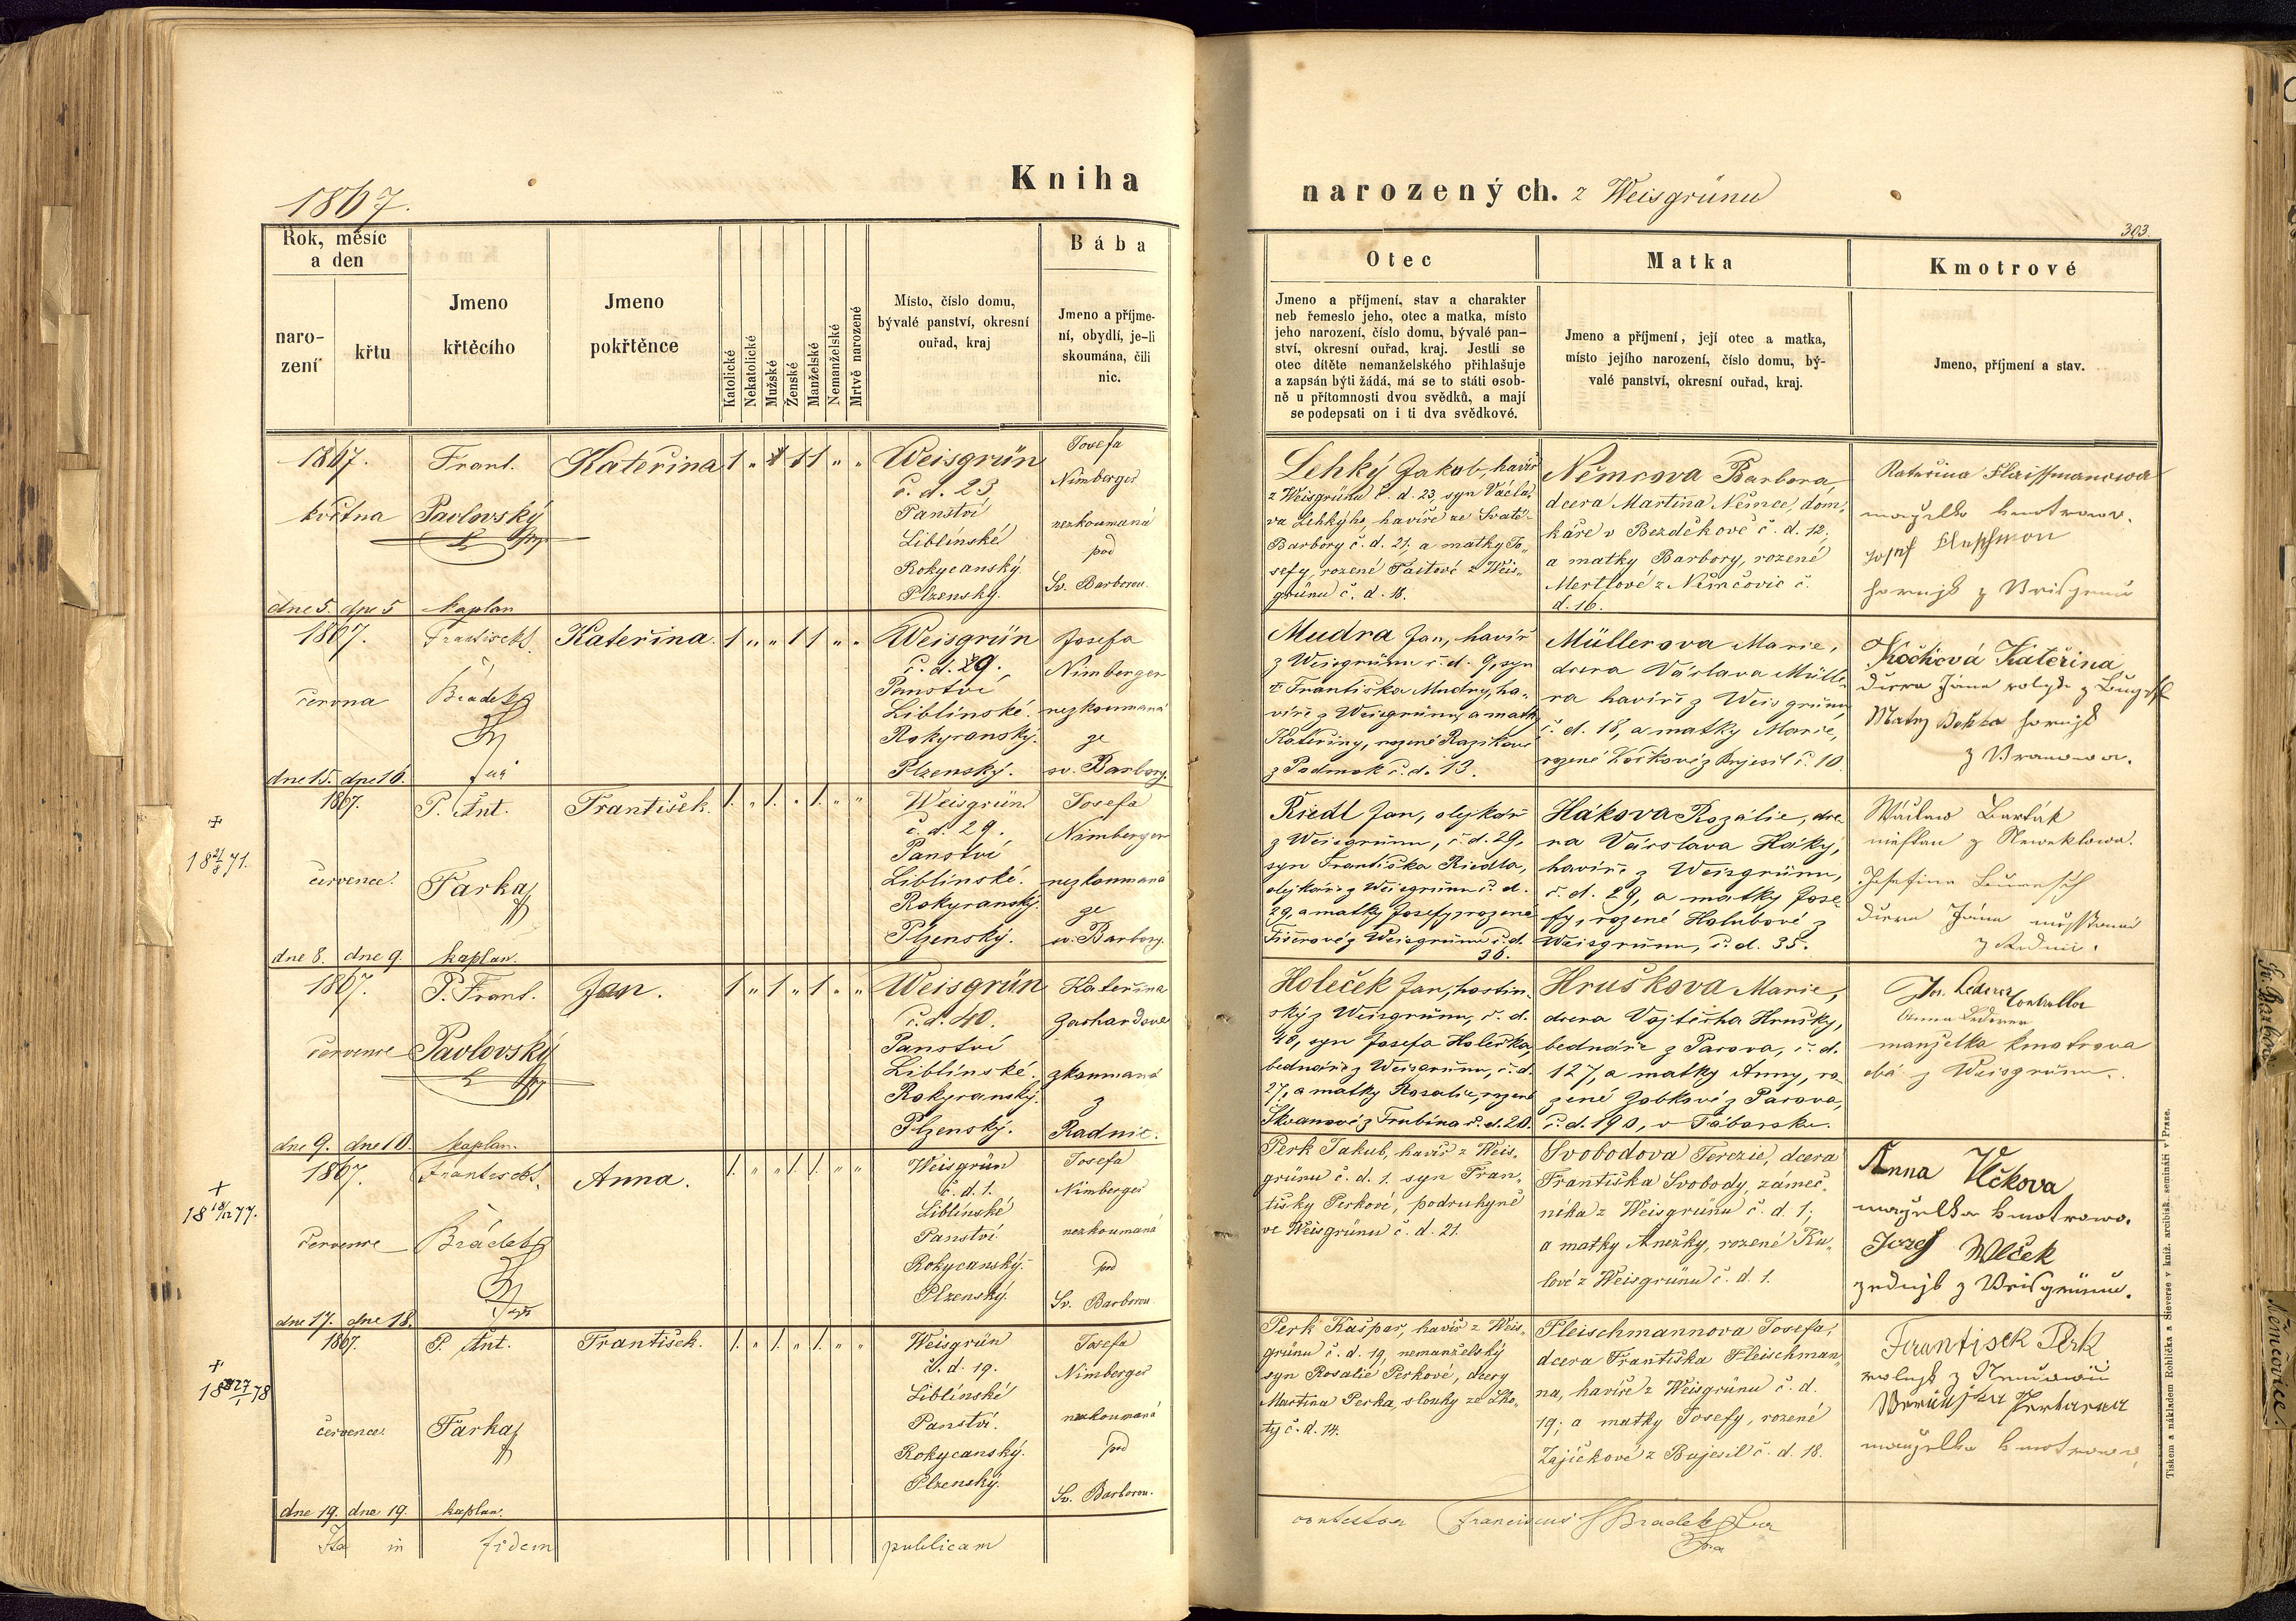 1867.
Kniha
narozených. z Weisgrünu
303.
Rok, měsíc
a den
naro-
zení
křtu
Jmeno
křtěcího
Jmeno
pokřtěnce
Katolické
Nekatolické
Mužské
Ženské
Manželské
Nemanželské
Mrtvě narozené
Místo, číslo domu,
bývalé panství, okresní
ouřad, kraj
Bába
Jmeno a příjme-
ní, obydlí, je-li
skoumána, čili
nic.
Otec
Jmeno a příjmení, stav a charakter
neb řemeslo jeho, otec a matka, místo
jeho narození, číslo domu, bývalé pan-
ství, okresní ouřad, kraj. Jestli se
otec dítěte nemanželského přihlašuje
a zapsán býti žádá, má se to státi osob-
ně u přítomnosti dvou svědků, a mají
se podepsati on i ti dva svědkové.
Matka
Jmeno a příjmení, její otec a matka,
místo jejího narození, číslo domu, bý-
valé panství, okresní ouřad, kraj.
Kmotrové
Jmeno, příjmení a stav.
1867.
května
dne 5. dne 5
Frant.
Pavlovský
kaplan
Kateřina
1 „ 1 1 „ „
Weisgrün
č. d. 23,
Panství
Liblínské
Rokycanský
Plzenský.
Josefa
Nimberger
nezkoumaná
pod
Sv. Barborou.
Lehký Jakob, havíř
z Weisgrünu č. d. 23, syn Václa-
va Lehkýho, havíře ze Svaté
Barbory č. d. 21; a matky Jo-
sefy, rozené Taitové z Weis-
grünu č. d. 18.
Němcova Barbora
dcera Martina Němce, dom-
káře v Bezděkově č. d. 12;
a matky Barbory, rozené
Mertlové z Němčovic č.
d. 16.
Kateřina Flaissmanowa
manželka kmotrowa.
Josef
z
1867.
června
dne 15. dne 16.
Frantisek
Brádek
far
Kateřina.
1 „ „ 1 1 „ „
Weisgrün
č. d. 29.,
Panství
Liblínské.
Rokycanský.
Plzenský.
Josefa
Nimberger
nezkoumaná
ze
sv. Barbory.
Mudra Jan, havíř
z Weisgrünu č. d. 9, syn
Františka Mudry, ha-
víře z Weisgrünu, a matky
Kateřiny, rozené
z Podmok č. d. 13.
Müllerova Marie,
dcera Václava Mülle-
ra havíře z Weisgrünu
č. d. 18, a matky Marie,
rozené Kočkové z Bujesil č. 10.
Kočková Kateřina
dcera Jána
Matej
z Wranowa.
+
18 21/8 71.
1867.
července.
dne 8. dne 9.
P. Ant.
Farka
kaplan.
František.
1. „ 1. „ 1. „ „
Weisgrün
č. d. 29.
Panství
Liblínské.
Rokycanský.
Plzenský.
Josefa
Nimberger
nezkoumaná
ze
sv. Barbory.
Riedl Jan, olejkář
z Weisgrünu, č. d. 29,
syn Františka Riedla,
olejkáře z Weisgrünu č. d.
29, a matky Josefy, rozené
Fišerové z Weisgrünu č. d.
36.
Hákova Rozálie, dce-
ra Václava Háky,
havíře z Weisgrünu,
č. d. 29, a matky Jose-
fy, rozené Holubové z
Weisgrünu, č. d. 35.
Wáclaw Barták
z
Josefina
dcera Jána
z Radnic.
1867.
července
dne 9. dne 10.
P. Frant.
Pavlovský
kaplan.
Jan.
1 „ 1 „ 1 „ „
Weisgrün
č. d. 40.
Panství
Liblínské.
Rokycanský.
Plzenský.
Kateřina
Zachardová
zkoumaná
z
Radnic.
Holeček Jan, hostin-
ský z Weisgrünu, č. d.
40, syn Josefa Holečka,
bednáře z Weisgrünu, č. d.
27, a matky Rosalie, rozené
Škvanové z Trubína č. d. 20.
Hruškova Marie,
dcera Vojtěcha Hrušky,
bednáře z Pacova, č. d.
127, a matky Anny, ro-
zené Zobkové z Pacova,
č. d. 190, v Táborsku.
Jos. Lederer Controllor
Anna Lederer
manželka kmotrova
oba z Weisgrünu.
+
18 18/12 77.
1867.
července
dne 17. dne 18.
Frantisek.
Brádek
Anna.
1. „ „ 1. 1. „ „
Weisgrün
č. d. 1.
Liblínské
Panství.
Rokycanský.
Plzenský.
Josefa
Nimberger
nezkoumaná
pod
Sv. Barborou
Perk Jakub, havíř z Weis-
grünu č. d. 1. syn Fran-
tišky Perkové, podruhyně
ve Weisgrünu č. d. 21.
Svobodova Terezie, dcera
Františka Svobody, zámeč-
níka z Weisgrünu č. d. 1;
a matky Anežky, rozené Ku-
lové z Weisgrünu č. d. 1.
Anna Vlčkova
manželka kmotrowa.
Jozef Wlček
z Weisgrünu.
+
18 27/1 78
1867.
července.
dne 19. dne 19.
P. Ant.
Farka
kaplan.
František.
1. „ 1. „ 1. „ „
Weisgrün
č. d. 19.
Liblínské
Panství.
Rokycanský.
Plzenský.
Josefa
Nimberger
nezkoumaná
pod
Sv. Barborou.
Perk Kašpar, havíř z Weis-
grünu č. d. 19, nemanželský
syn Rosalie Perkové, dcery
Martina Perka, slouhy ze Lho-
ty č. d. 14.
Fleischmannova Josefa,
dcera Františka Fleischman-
na, havíře z Weisgrünu č. d.
19; a matky Josefy, rozené
Zajíčkové z Bujesil č. d. 18.
Frantisek Perk
z
manželka kmotrowa
Ita in fidem publicam
contestor Franciscus Brádek
Tiskem a nákladem Rohlíčka a Sieverse v kníž. arcibisk. semináři v Praze.
Sv. Barbora
Němčovice.